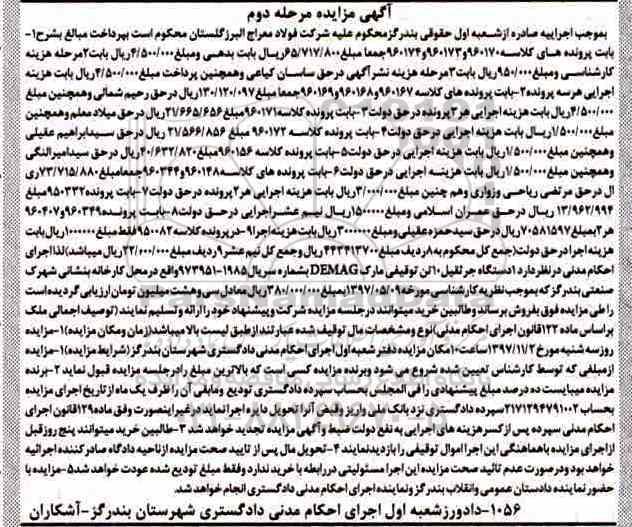 آگهی مزایده مرحله دوم
بموجب اجراییه صادره ازشعبه اول حقوقی بندرگزمحکوم علیه شرکت فولاد معراج البرزگلستان محکوم است بپرداخت مبالغ بشرح۱-
بابت پرونده های کلاسه۹۶۰۱۷۰و۹۶۰۱۷۳و۹۶۰۱۷۴جمعا مبلغ۶۵/۷۱۷/۸۰۰ریال بابت بدهی ومبلغ۴/۵۰۰/۰۰۰ریال بابت۲مرحله هزینه
کارشناسی ومبلغ۹۵۰/۰۰۰ریال بابت۳مرحله هزینه نشرآگهی درحق ساسان کیاعی وهمچنین پرداخت مبلغ۴/۵۰۰/۰۰۰ریال هزینه
اجرایی هرسه پرونده۲-بابت پرونده های کلاسه ۹۶۰۱۶۷و۹۶۰۱۶۸و۹۶۰۱۶۹جمعا مبلغ۱۳۰/۱۲۰/۰۹۷ریال درحق رحیم شمالی وهمچنین مبلغ
۴/۵۰۰/۰۰۰ریال بابت هزینه اجرایی هر۳پرونده درحق دولت۳-بابت پرونده کلاسه۹۶۰۱۷۱مبلغ۲۱/۶۶۵/۶۵۶ریال درحق میلاد معلم وهمچنین
مبلغ۱/۵۰۰/۰۰۰ریال بابت هزینه اجرایی درحق دولت۴-بابت پرونده کلاسه ۹۶۰۱۷۲ مبلغ ۲۱/۵۶۶/۸۵۶ ریال درحق سیدابراهیم عقیلی
وهمچنین مبلغ۱/۵۰۰/۰۰۰ریال بابت هزینه اجرایی درحق دولت۵-بابت پرونده کلاسه ۹۶۰۱۵۶مبلغ۴۰/۶۳۲/۸۲۰ریال درحق سیدامیرالنگی
وهمچنین مبلغ۱/۵۰۰/۰۰۰ریال بابت هزینه اجرایی درحق دولت۶-بابت پرونده های کلاسه۹۶۰۱۴۸و۹۶۰۳۴۴جمعامبلغ۷۳/۷۱۵/۸۸۰ری
ال درحق مرتضی ریاحی وزواری وهم چنین مبلغ۳/۰۰۰/۰۰۰ریال بابت هزینه اجرایی هر۲پرونده درحق دولت۷-بابت پرونده۹۵۰۳۳۲مبلغ
۱۳/۹۶۲/۹۹۴ ریال درحق عمران اسلامی ومبلغ۱۵۰۰۰۰۰ریال نیم عشراجرایی درحق دولت۸-بابت پرونده۹۶۰۳۴۹و۹۶۰۴۰۷
هر۲بمبلغ۷۰۵۸۱۵۹۷ریال درحق سیدحمزه عقیلی ومبلغ۳۰۰۰۰۰۰ریال بابت هزینه اجرا۹-درپرونده کلاسه ۹۵۰۰۸۲فقط مبلغ۱۰۰۰۰۰۰ریال بابت
هزینه اجرا درحق دولت(جمع کل محکوم به۸ردیف مبلغ۴۴۲۴۱۳۷۰۰ریال وجمع کل نیم عشر۹ردیف مبلغ۲۲/۰۰۰/۰۰۰ریال میباشد)لذااجرای
احکام مدنی درنظردارد ۱دستگاه جرثقیل ۱۰تن توقیفی مارک DEMAG بشماره سریال۱۹۸۵-۹۷۳۹۵۱واقع درمحل کارخانه بنشانی شهرک
صنعتی بندرگز که بموجب نظریه کارشناسی مورخه ۱۳۹۷/۰۵/۰۹بمبلغ ۳۸۰/۰۰۰/۰۰۰ریال معادل سی وهشت میلیون تومان ارزیابی گردیده است
را طی مزایده فوق بفروش برساند وطالبین خرید میتوانند درجلسه مزایده شرکت وپیشنهاد خود را ارائه وتسلیم نمایند (توصیف اجمالی ملک
براساس ماده ۱۲۲قانون اجرای احکام مدنی)نوع ومشخصات مال توقیف شده عبارتندازطبق لیست بالا میباشد(زمان ومکان مزایده)۱-مزایده
روزسه شنبه مورخ ۱۳۹۷/۱۱/۲ساعت۱۰مکان مزایده دفتر شعبه اول اجرای احکام مدنی دادگستری شهرستان بندرگز(شرایط مزایده)۱-مزایده
ازمبلغی که توسط کارشناس تعیین شده شروع می شود وبرنده مزایده کسی است که بالاترین مبلغ رادرجلسه مزایده قبول نماید ۲-برنده
مزایده میبایست ده درصد مبلغ پیشنهادی را فی المجلس بحساب سپرده دادگستری تودیع ومابقی آن را ظرف یک ماه از تاریخ اجرای مزایده
بحساب ۲۱۷۱۲۹۴۷۹۱۰۰۲سپرده دادگستری نزد بانک ملی واریز وقبض آنرا تحویل دایره اجرا نماید درغیراینصورت وفق ماده۱۲۹قانون اجرای
احکام مدنی سپرده پس ازکسرهزینه های اجرایی به نفع دولت ضبط وآگهی مزایده تجدید خواهد شد ۳-طالبین خرید میتوانند پنج روزقبل
ازاجرای مزایده باهماهنگی این اجرا اموال توقیفی را بازدیدنمایند ۴-تحویل مال پس از تایید صحت مزایده ازناحیه دادگاه صادرکننده اجرائیه
خواهد بود ودرصورت عدم تائید صحت مزایده این اجرا مسئولیتی دررابطه با خریدندارد وفقط مبلغ تودیع شده عودت خواهد شد۵-مزایده با
حضور نماینده دادستان عمومی وانقلاب بندرگز ونماینده اجرای احکام مدنی دادگستری انجام خواهدشد.
۱۰۵۶-دادورزشعبه اول اجرای احکام مدنی دادگستری شهرستان بندرگز-آشکاران